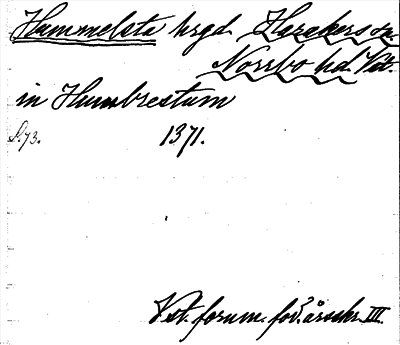 Hummelsta hrgd. Harakers sn.
Norrbo hd. Vst.
in Humbrestum
S. 73. 1371.
Vst. fornm. för. årsskr. III.